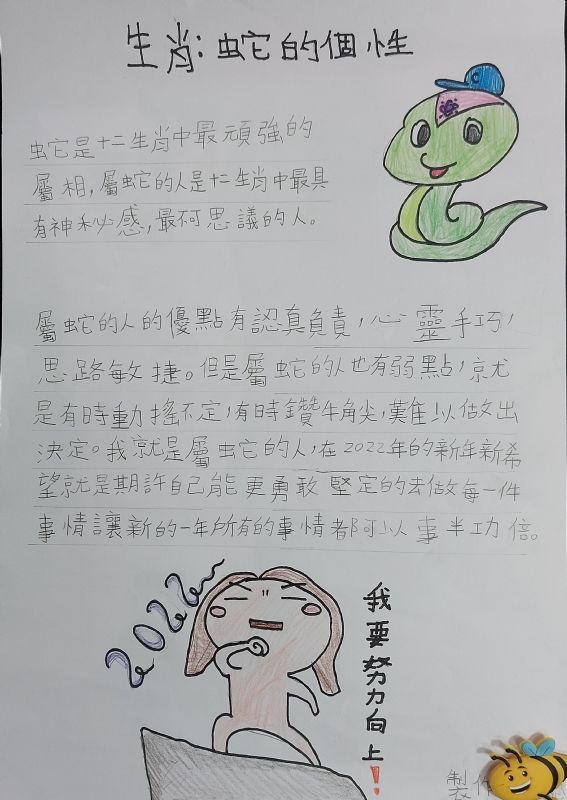 生肖:蛇的個性
蛇是十二生肖中最頑強的
屬相,屬蛇的人是十二生肖中最具
有神秘感,最不可思議的人。
屬蛇的人的優點有認真負責,心靈手巧,
思路敏捷。但是屬蛇的人也有弱點,就
是有時動搖不定,有時鑽牛角尖,難以做出
決定。我就是屬蛇的人,在2022年的新年新希
望就是期許自己能更勇敢堅定的去做每一件
事情讓新的一年所有的事情都可以事半功倍。
2022
我要努力向上!
製作